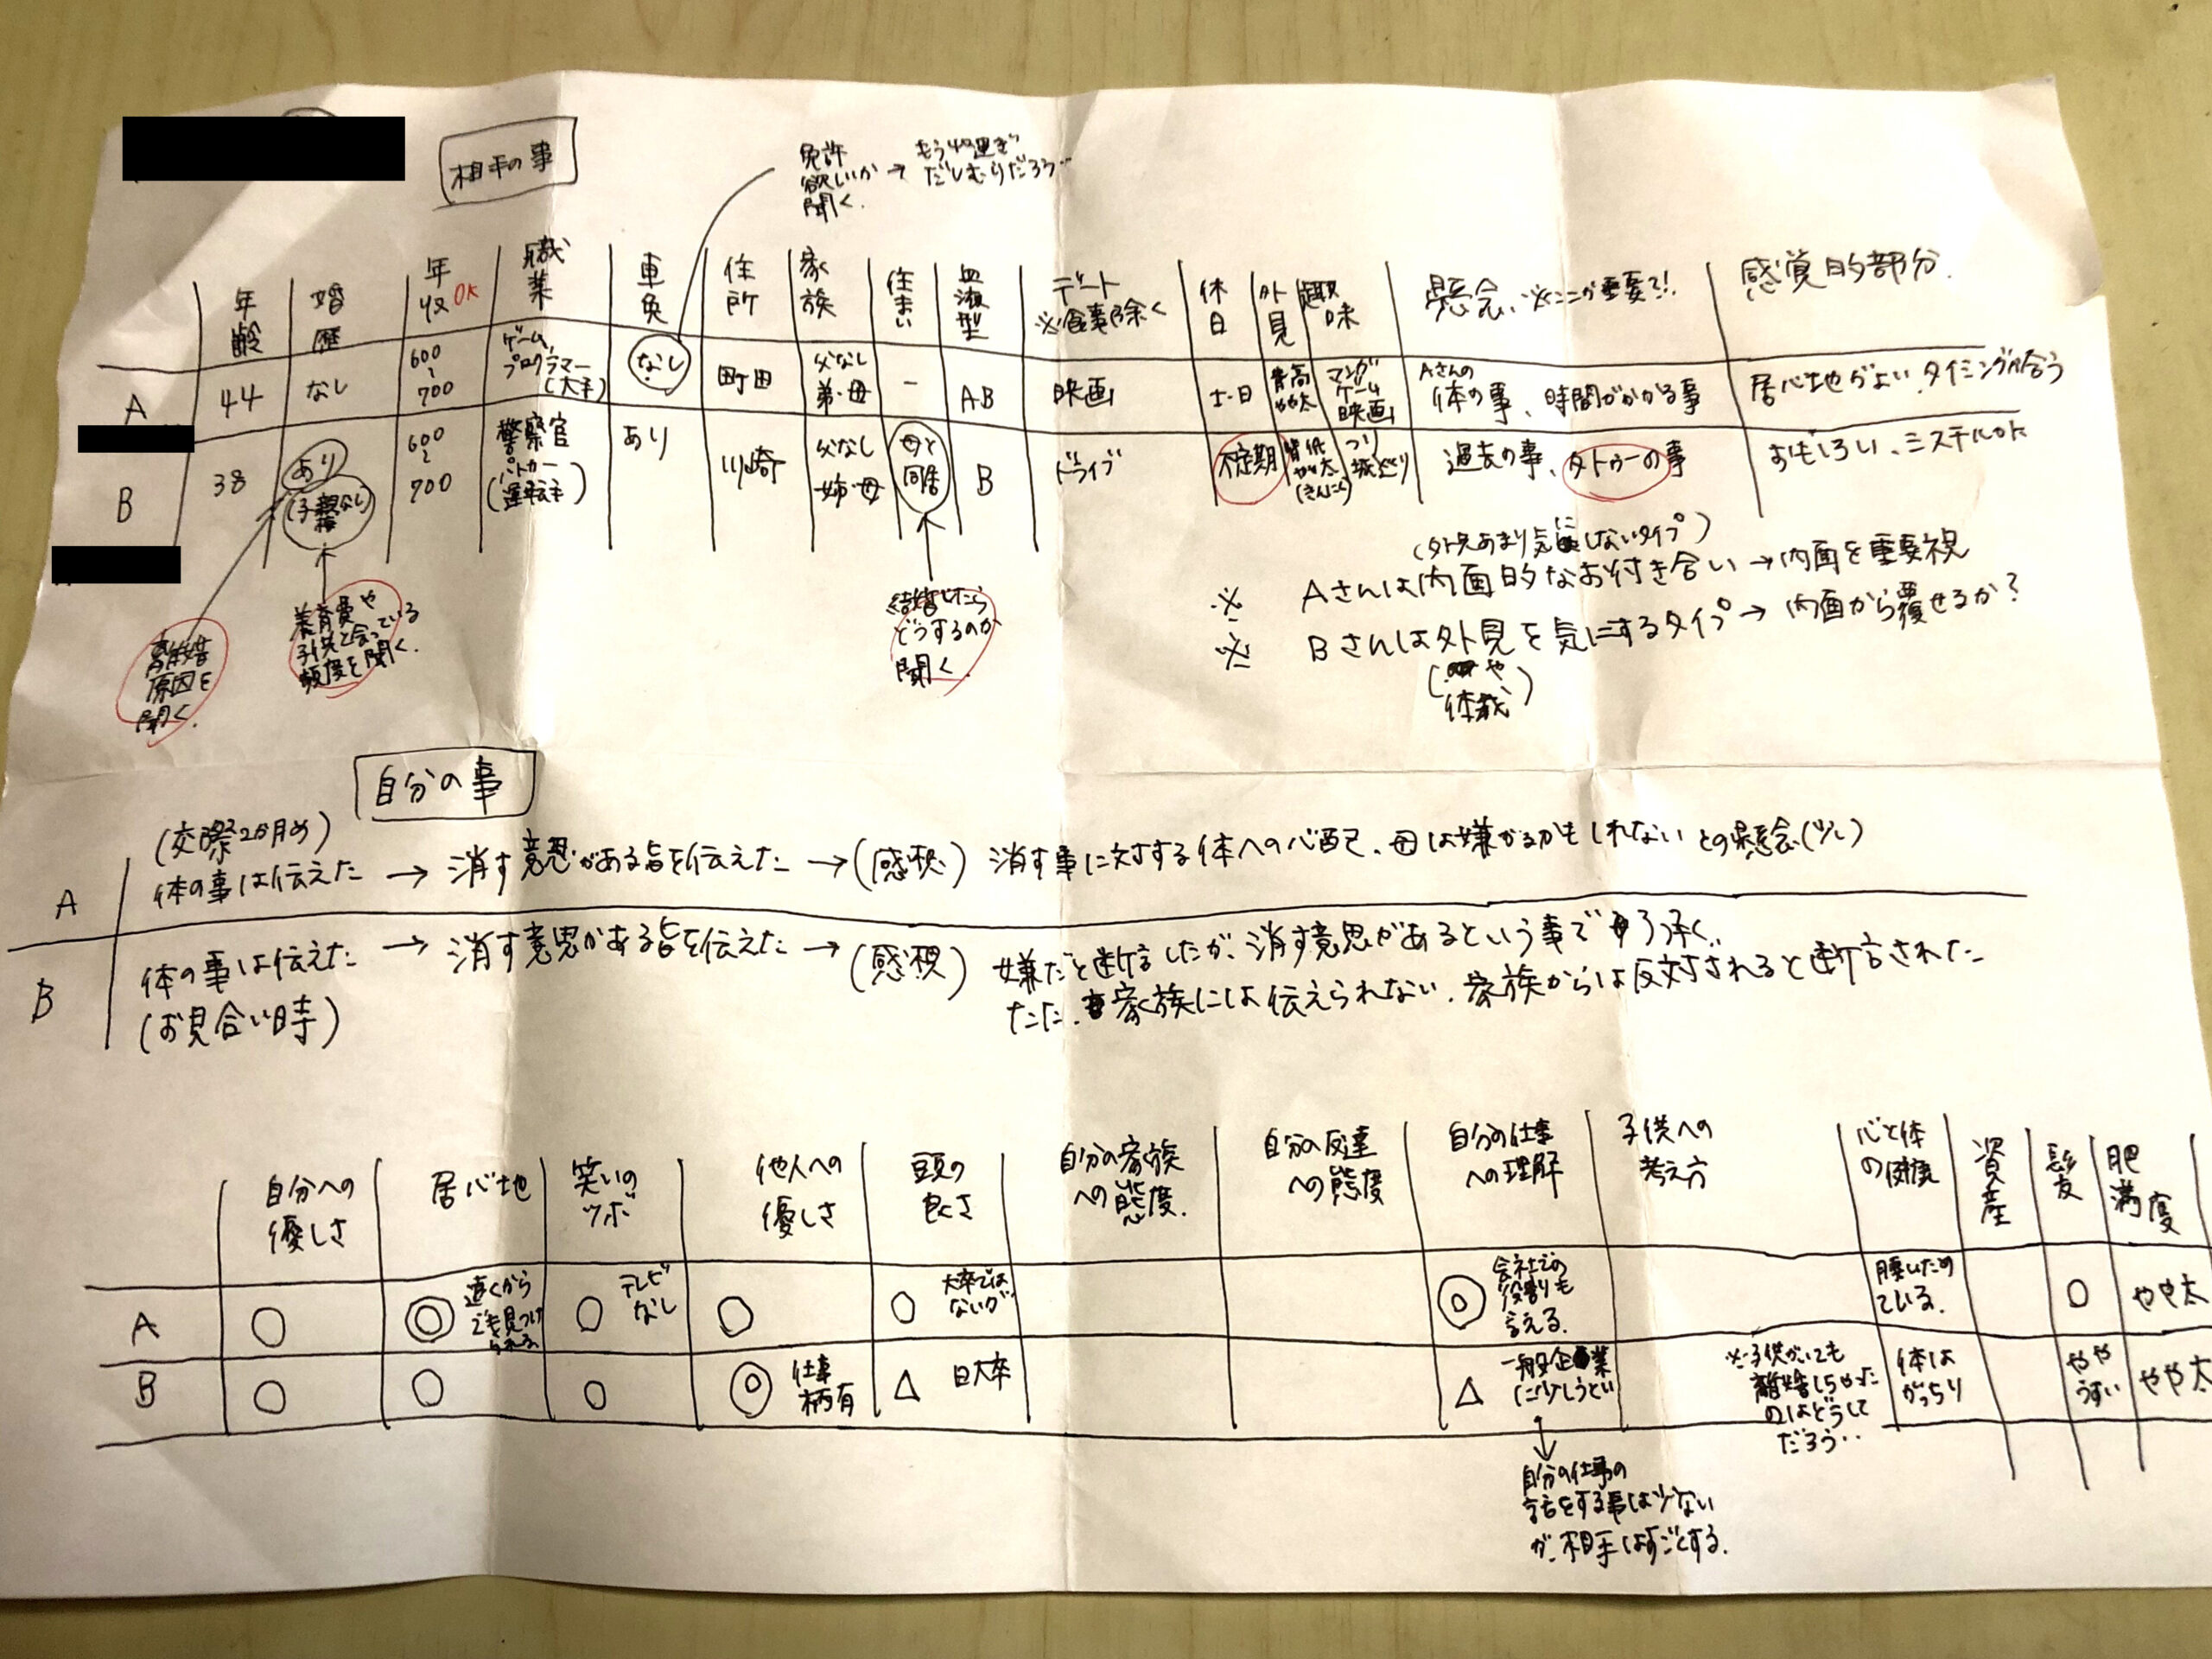 相手の事
免許
欲しいか → もう40過ぎ
聞く。 だしむりだろう…
年齢 婚歴 年収 OK 職業 車免 住所 家族 住まい 血液型 デート ※食事除く 休日 外見 趣味 懸念、※ここが重要?!. 感覚的部分.
A 44 なし 600~700 ゲームプログラマー(大手) なし 町田 父なし 弟・母 ー AB 映画 土・日 背高 やや太 マンガ ゲーム 映画 Aさんの体の事、時間がかかる事 居心地がよい、タイミングが合う
B 38 あり (子 親権なし) 600~700 警察官 (パトカー運転手) あり 川崎 父なし 姉・母 母と同居 B ドライブ 不定期 背低 やや太 (きんにく) つり 城めぐり 過去の事、タトゥーの事 おもしろい、ミステリアス
離婚
原因を
聞く.
養育費や
子供と会っている
頻度を聞く.
結婚したら
どうするのか
聞く.
(外見あまり気にしないタイプ)
※ Aさんは内面的なお付き合い → 内面を重要視
※ Bさんは外見を気にするタイプ → 内面から覆せるか?
(や
体裁)
自分の事
A (交際2カ月め)
体の事は伝えた → 消す意思がある旨を伝えた → (感想) 消す事に対する体への心配、母は嫌がるかもしれないとの懸念(少し)
B 体の事は伝えた → 消す意思がある旨を伝えた → (感想) 嫌だと断言したが、消す意思があるという事で了承。
(お見合い時) ただ、家族には伝えられない、家族からは反対されると断言された
自分への優しさ 居心地 笑いのツボ 他人への優しさ 頭の良さ 自分の家族への態度. 自分の友達への態度 自分の仕事への理解 子供への考え方 心と体の健康 資産 髪 肥満度
A ○ ◎ 遠くからでも見つけられる ○ テレビなし ○ ○ 大卒ではないが ◎ 会社での役割りも言える. 腰いためている. ○ やや太
B ○ ○ ○ ◎ 仕事柄有 △ 日大卒 △ 一般企業に少しうとい ※子供がいても離婚しちゃったのはどうしてだろう‥ 体はがっちり ややうすい やや太
自分の仕事の
話をする事は少ない
が、相手はすごとする.